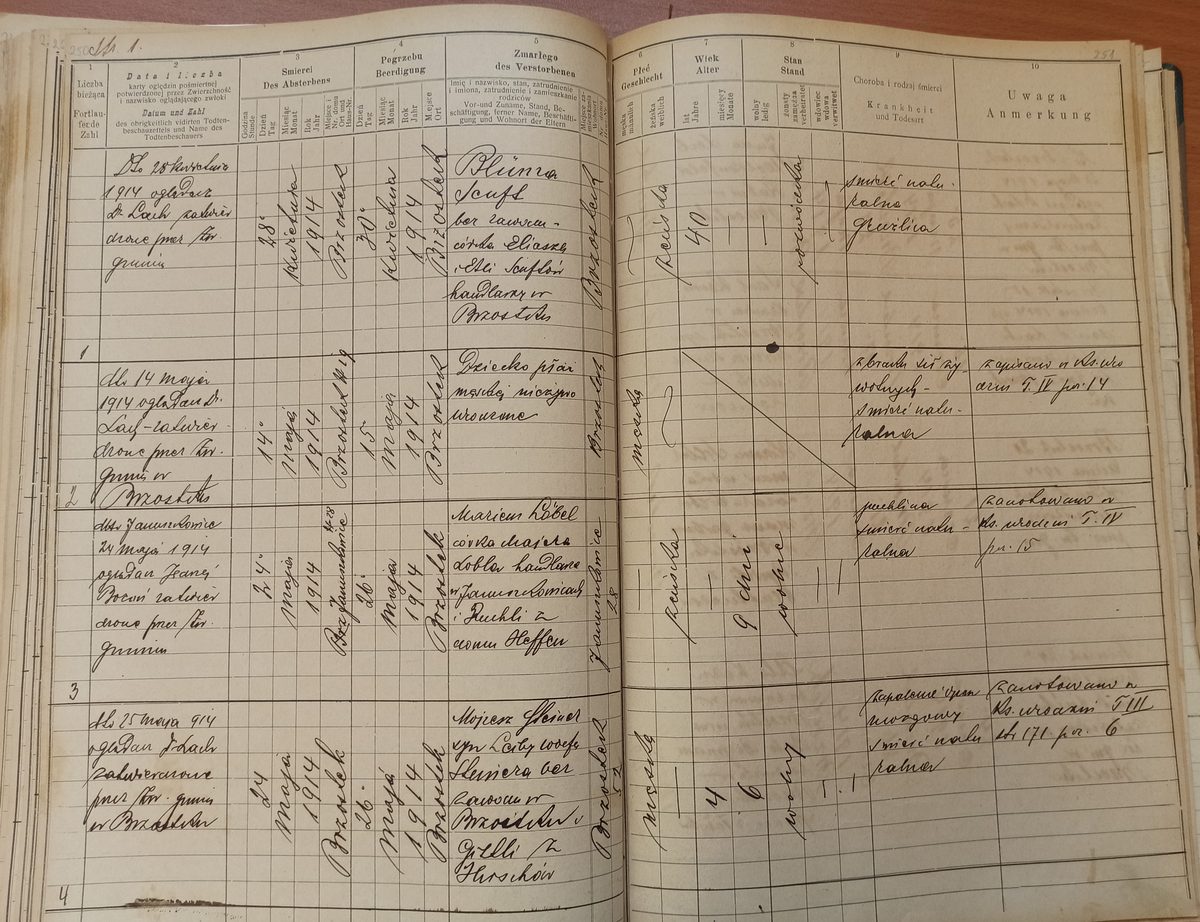 Str 1.
251
1
2
3
4
5
6
7
8
9
10
Liczba
bieżąca
Fortlau-
fende
Zahl
Data i liczba
karty oględzin pośmiertnej
potwierdzonej przez Zwierzchność
i nazwisko oglądającego zwłoki
Datum und Zahl
des obrigkeitlich vidirten Todten-
beschauzettels und Name des
Todtenbeschauers
Śmierci
Des Absterbens
Godzina
Stunde
Dzień
Tag
Miesiąc
Monat
Rok
Jahr
Miejsce i
Nr. domu
Ort und
Haus-Nr.
Pogrzebu
Beerdigung
Dzień
Tag
Miesiąc
Monat
Rok
Jahr
Miejsce
Ort
Zmarłego
des Verstorbenen
Imię i nazwisko, stan, zatrudnienie
i imiona, zatrudnienie i zamieszkanie
rodziców
Vor-und Zuname, Stand, Be-
schäftigung, ferner Name, Beschäfti-
gung und Wohnort der Eltern
Płeć
Geschlecht
męska
männlich
żeńska
weiblich
Wiek
Alter
lat
Jahre
miesięcy
Monate
Stan
Stand
wolny
ledig
żonaty
zamężna
verheiratet
wdowiec
wdowa
verwitwet
Choroba i rodzaj śmierci
Krankheit
und Todesart
Uwaga
Anmerkung
1
Dto 28 kwietnia
1914 oglądacz
Dr. Lach zatwier
dzone przez Zw.
gminną
28
kwietnia
1914
Brzostek
30
kwietnia
1914
Brzostek
Blüma
Scuft
bez zawodu-
córka Eliasza
i Etli Scuftów
handlarzy w
Brzostku
Brzostek
żeńska
40
—
rozwódka
śmierć natu-
ralna
Gruźlica
2
dto 14 maja
1914 oglądacz Dr.
Lach-zatwier
dzone przez Zw.
gminną w
Brzostku
14
maja
1914
Brzostek
15
maja
1914
Brzostek
Dziecko płci
męskiej nieżywo
urodzone
Brzostek
męska
z braku sił ży
wotnych-
śmierć natu-
ralna
zapisano w ks. uro
dzin T. IV poz. 14
3
dto Januszkowice
24 maja 1914
oglądacz Jędrzej
Bocoń zatwier
dzone przez Zw.
gminną
24
maja
1914
Januszkowice
28
26
maja
1914
Brzostek
Mariem Löbel
córka Majera
Lobla handlarza
w Januszkowicach
i Ruchli z
domu Heffen
Januszkowice
28
żeńska
—
9 dni
wolne
—
puchlina
śmierć natu-
ralna
zanotowano w
ks. urodzin T. IV
poz. 15
4
dto 25 maja 914
oglądacz Dr. Lach
zatwierdzone
przez Zw. gminną
w Brzostku
24
maja
1914
Brzostek
26
maja
1914
Brzostek
Mojżesz Steiner
syn Leiby Josefa
Steinera bez
zawodu w
Brzostku i
Gittli z
Hirschów
Brzostek
52
męska
—
4
6
wolny
—
zapalenie opon
mozgowy
śmierć natu
ralna
zanotowano w
ks. urodzin T III
str 171 poz. 6